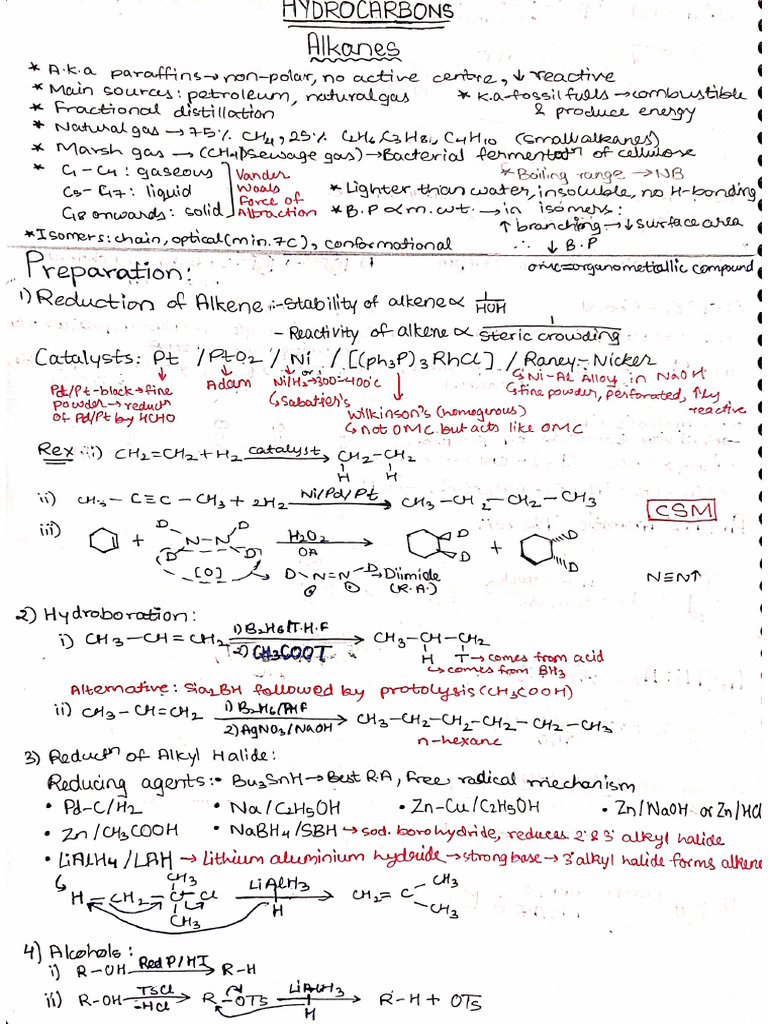 HYDROCARBONS
Alkanes
* A.k.a paraffins → non-polar, no active centre, ↓ reactive
* Main sources: petroleum, natural gas * k.a fossil fuels → combustible & produce energy
* Fractional distillation
* Natural gas → 75% CH4, 25% C2H6, C3H8, C4H10 (small alkanes)
* Marsh gas → (CH4)(sewage gas) → Bacterial fermentatn of cellulose
* C1-C4: gaseous
C5-C17: liquid
C18 onwards: solid
Vander Waals Force of Attraction
* Boiling range → NB
* Lighter than water, insoluble, no H-bonding
* B.P ∝ m.wt. → in isomers:
↑ branching → ↓ surface area
∴ ↓ B.P
* Isomers: chain, optical (min. 7C), conformational
Preparation:
OMC = organometallic compound
1) Reduction of Alkene :- Stability of alkene ∝ 1/HOH
- Reactivity of alkene ∝ 1/steric crowding
Catalysts: Pt / PtO2 / Ni / [(ph3P)3RhCl] / Raney-Nicker
Pd/Pt-black → fine powder → reductn of Pd/Pt by HCHO
Adam
Ni/H2 → 300-400°C
↳ Sabatier's
Wilkinson's (homogenous)
↳ not OMC but acts like OMC
↳ Ni-Al Alloy in NaOH
↳ fine powder, perforated, ↑ly reactive
Rex: i) CH2=CH2 + H2 catalyst→ CH2-CH2
H H
ii) CH3-C≡C-CH3 + 2H2 Ni/Pd/Pt→ CH3-CH2-CH2-CH3
CSM
iii) + D D N-N D D H2O2 OA → D D + D D
[O] → D-N=N-D → Diimide (R.A.)
N≡N↑
2) Hydroboration:
i) CH3-CH=CH2 1) B2H6/T.H.F 2) CH3COOT → CH3-CH-CH2
H T → comes from acid
↳ comes from BH3
Alternative: Sia2BH followed by protolysis (CH3COOH)
ii) CH3-CH=CH2 1) B2H6/THF 2) AgNO3/NaOH → CH3-CH2-CH2-CH2-CH2-CH3
n-hexane
3) Reductn of Alkyl Halide:
Reducing agents: • Bu3SnH → Best RA, free radical mechanism
• Pd-C/H2 • Na/C2H5OH • Zn-Cu/C2H5OH • Zn/NaOH or Zn/HCl
• Zn/CH3COOH • NaBH4/SBH → sod. borohydride, reduces 2° & 3° alkyl halide
• LiAlH4/LAH → Lithium aluminium hydride → strong base → 3° alkyl halide forms alkene
↳ H-CH2-C-Cl CH3 CH3 LiAlH3 H → CH2=C CH3 CH3
4) Alcohols:
i) R-OH Red P/HI → R-H
ii) R-OH TsCl -HCl → R-OTs LiAlH3 H → R-H + OTs